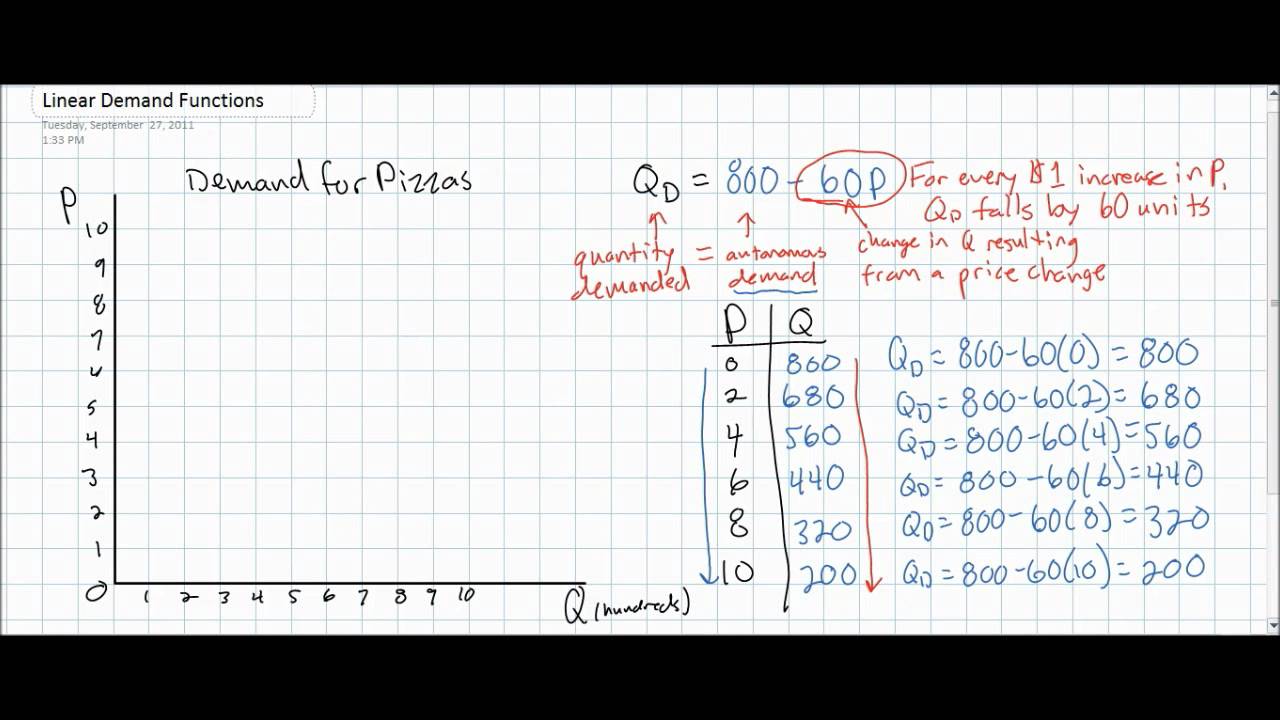 Linear Demand Functions
Tuesday, September 27, 2011
1:33 PM
Demand for Pizzas
P
10
9
8
7
6
5
4
3
2
1
0
1 2 3 4 5 6 7 8 9 10
Q (hundreds)
QD = 800 - 60P
For every $1 increase in P,
QD falls by 60 units
quantity demanded = autonomous demand
change in Q resulting
from a price change
P Q
0 800
2 680
4 560
6 440
8 320
10 200
QD = 800-60(0) = 800
QD = 800-60(2) = 680
QD = 800-60(4) = 560
QD = 800-60(6) = 440
QD = 800-60(8) = 320
QD = 800-60(10) = 200